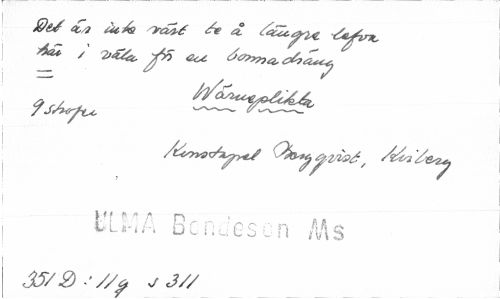 Det är inte värt te å längre lefva
här i väla för en bonnadräng
=
9 strofer
Wärneplikta
Konstapel Bergqvist, Kviberg
ULMA Bondeson Ms
351 D : 11 q s 311